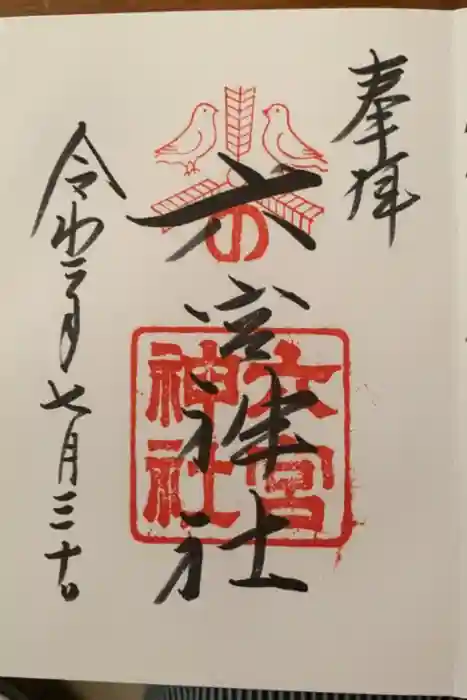 奉拝
六宮神社
の
六宮
神社
令和二年七月三十日